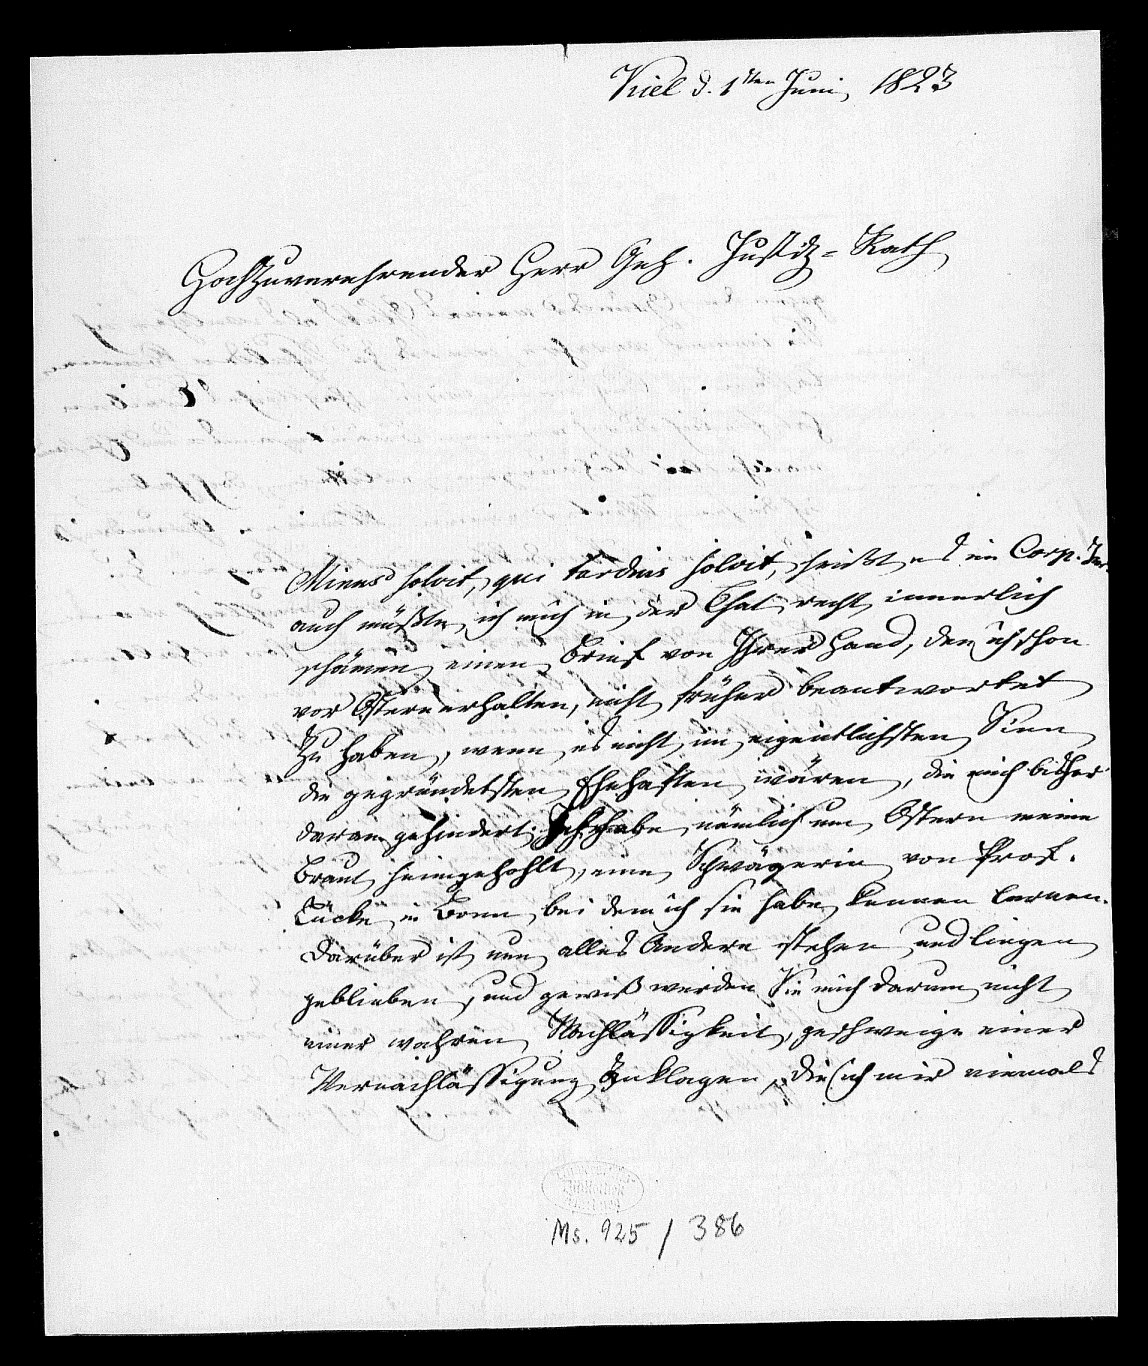 Kiel d. 1sten Juni, 1823
Hochzuverehrender Herr Geh. Justitz-Rath
Minus solvit, qui tardius solvit, heißt es im Corp. Jur.
auch müßte ich mich in der That recht innerlich
schämen einen Brief von Ihrer Hand, den ich schon
vor Ostern erhalten, nicht früher beantwortet
zu haben, wenn es nicht im eigentlichsten Sinn
die gegründetsten Ehehaften wären, die mich bisher
daran gehindert; Ich habe nämlich um Ostern meine
Braut heimgehohlt, eine Schwägerin von Prof.
Lücke in Bonn, bei dem ich sie habe kennen lernen.
Darüber ist nun alles Andere stehen und liegen
geblieben, und gewiß werden Sie mich darum nicht
einer wahren Nachlässigkeit, geschweige einer
Vernachlässigung anklagen, die ich mir niemals
Ms. 925 / 386